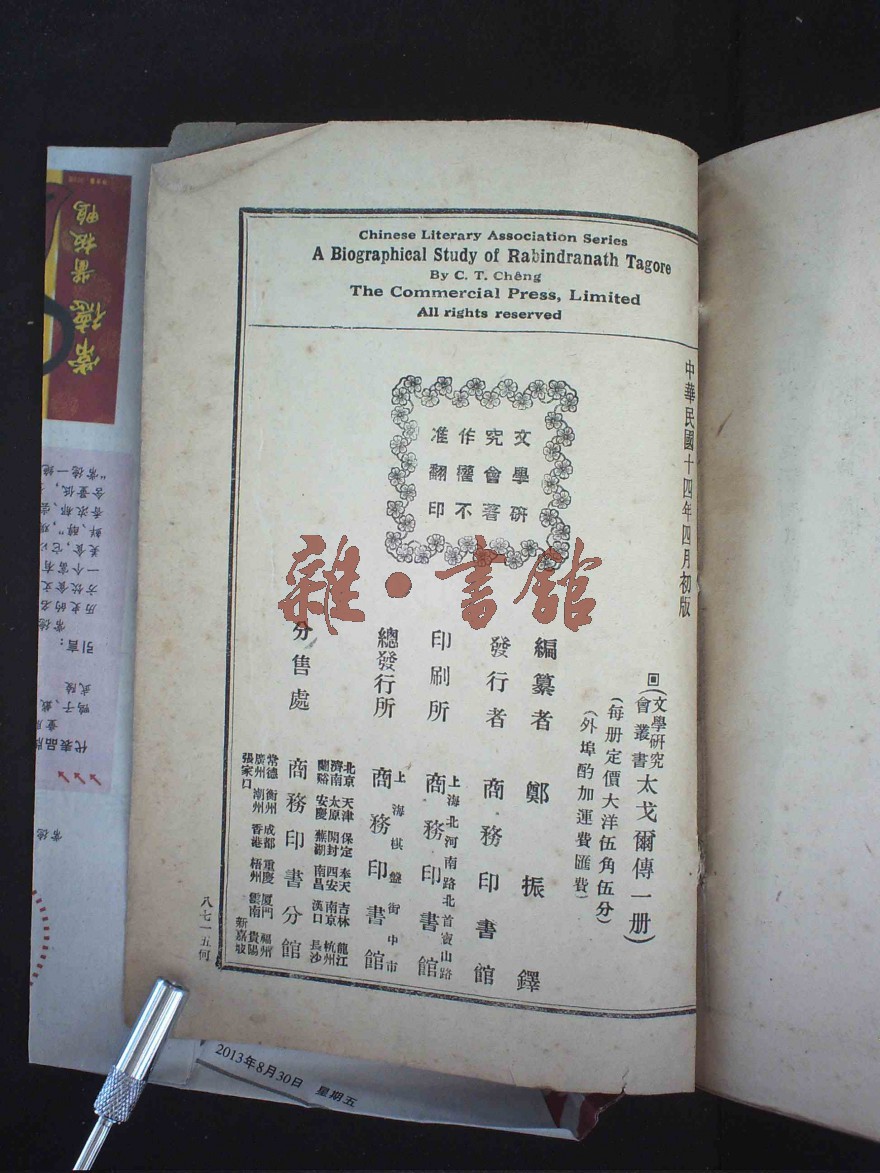 Chinese Literary Association Series
A Biographical Study of Rabindranath Tagore
By C. T. Chêng
The Commercial Press, Limited
All rights reserved
文學研
究會著
作權不
准翻印
中華民國十四年四月初版
(文學研究會叢書)太戈爾傳一册)
(每册定價大洋伍角伍分)
(外埠酌加運費匯費)
編纂者 鄭振鐸
發行者 商務印書館
印刷所 上海北河南路北首寶山路 商務印書館
總發行所 上海棋盤街中市 商務印書館
分售處 商務印書分館
北京 天津 保定 奉天 吉林 龍江
濟南 太原 開封 西安 南京 杭州
蘭谿 安慶 蕪湖 南昌 漢口 長沙
常德 衡州 成都 重慶 厦門 福州
廣州 潮州 香港 梧州 雲南 貴陽
張家口 新嘉坡
八七一五何
雜·書館
常德醬板鴨
引言：
代表品牌
武陵
常德
2013年8月30日 星期五